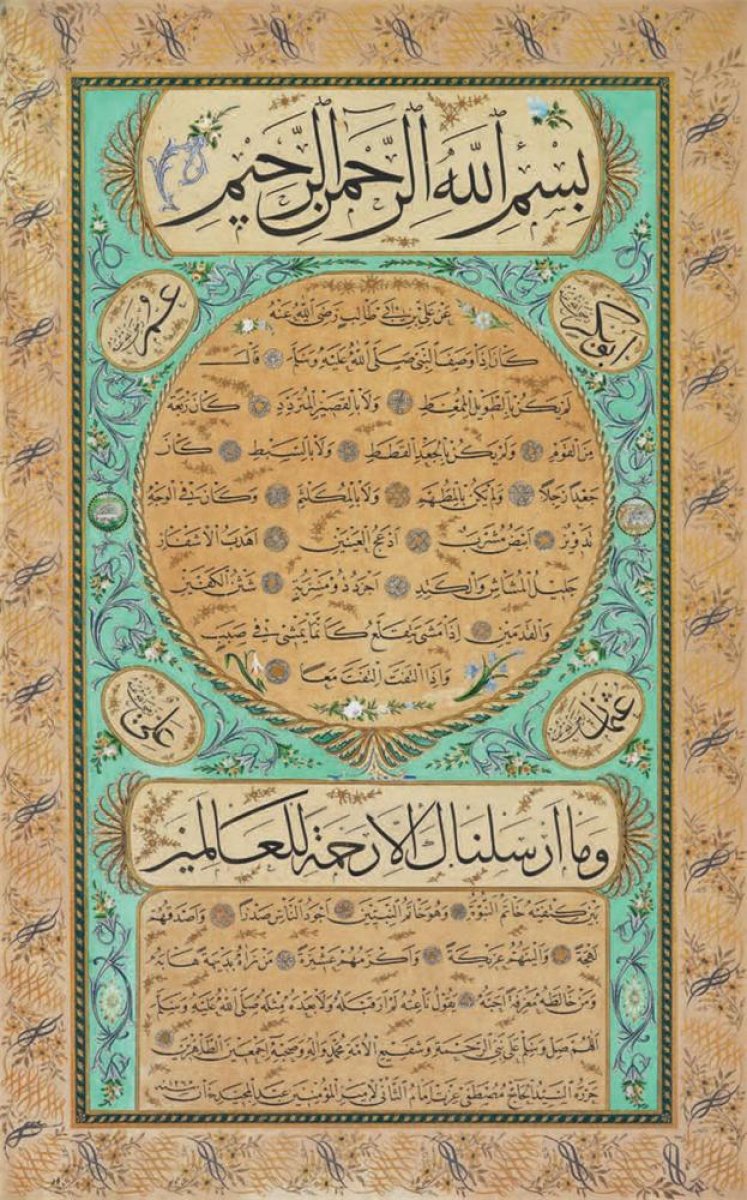 بِسْمِ اللّٰهِ الرَّحْمٰنِ الرَّحِيمِ
ابو بكر
عمر
عَنْ عَلِيِّ بْنِ اَبِي طَالِبٍ رَضِيَ اللّٰهُ عَنْهُ
كَانَ اِذَا وَصَفَ النَّبِيَّ صَلَّى اللّٰهُ عَلَيْهِ وَسَلَّمَ قَالَ
لَمْ يَكُنْ بِالطَّوِيلِ الْمُمَّغِطِ وَلَا بِالْقَصِيرِ الْمُتَرَدِّدِ كَانَ رَبْعَةً
مِنَ الْقَوْمِ وَلَمْ يَكُنْ بِالْجَعْدِ الْقَطَطِ وَلَا بِالسَّبِطِ كَانَ
جَعْدًا رَجِلًا وَلَمْ يَكُنْ بِالْمُطَهَّمِ وَلَا بِالْمُكَلْثَمِ وَكَانَ فِي الْوَجْهِ
تَدْوِيرٌ اَبْيَضُ مُشْرَبٌ اَدْعَجُ الْعَيْنَيْنِ اَهْدَبُ الْاَشْفَارِ
جَلِيلُ الْمُشَاشِ وَالْكَتَدِ اَجْرَدُ ذُو مَسْرُبَةٍ شَثْنُ الْكَفَّيْنِ
وَالْقَدَمَيْنِ اِذَا مَشَى يَتَقَلَّعُ كَاَنَّمَا يَمْشِي فِي صَبَبٍ
وَاِذَا الْتَفَتَ الْتَفَتَ مَعًا
عثمان
علي
وَمَا اَرْسَلْنَاكَ اِلَّا رَحْمَةً لِلْعَالَمِينَ
بَيْنَ كَتِفَيْهِ خَاتَمُ النُّبُوَّةِ وَهُوَ خَاتَمُ النَّبِيِّينَ اَجْوَدُ النَّاسِ صَدْرًا وَاَصْدَقُهُمْ
لَهْجَةً وَاَلْيَنُهُمْ عَرِيكَةً وَاَكْرَمُهُمْ عَشِيرَةً مَنْ رَاٰهُ بَدِيهَةً هَابَهُ
وَمَنْ خَالَطَهُ مَعْرِفَةً اَحَبَّهُ يَقُولُ نَاعِتُهُ لَمْ اَرَ قَبْلَهُ وَلَا بَعْدَهُ مِثْلَهُ صَلَّى اللّٰهُ عَلَيْهِ وَسَلَّمَ
اَللّٰهُمَّ صَلِّ وَسَلِّمْ عَلَى نَبِيِّ الرَّحْمَةِ وَشَفِيعِ الْاُمَّةِ مُحَمَّدٍ وَاٰلِهِ وَصَحْبِهِ اَجْمَعِينَ الطَّاهِرِينَ
حَرَّرَهُ السَّيِّدُ الْحَاجُّ مُصْطَفَى عِزَّت اِمَامُ الثَّانِي لِاَمِيرِ الْمُؤْمِنِينَ عَبْدِ الْمَجِيدْ خَانْ